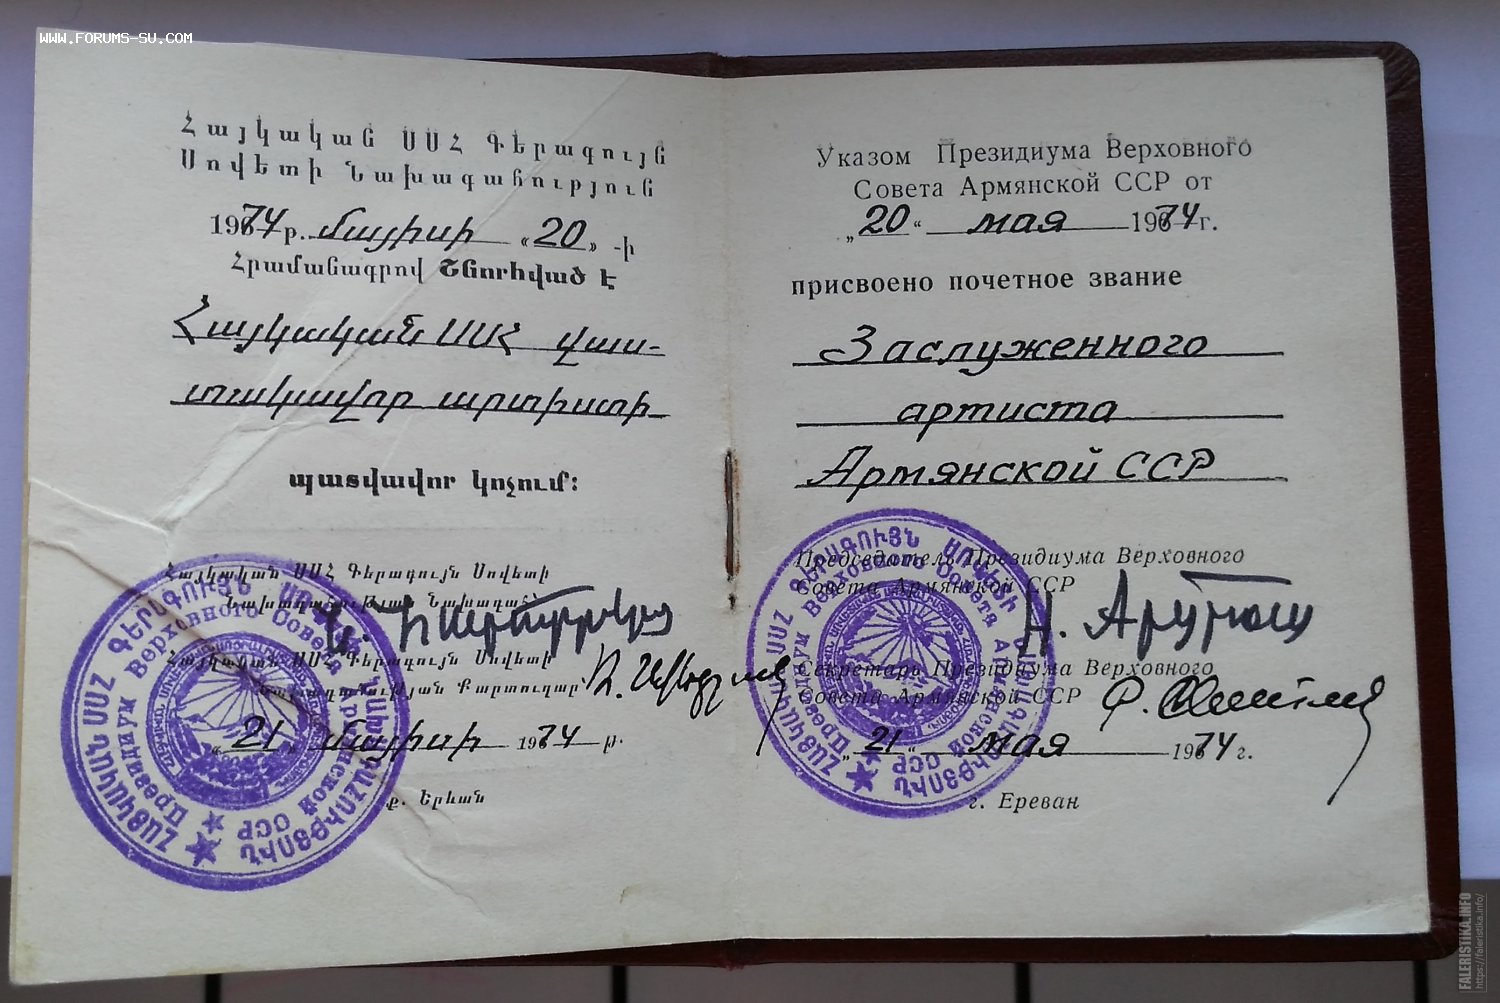 WWW.FORUMS-SU.COM
Հայկական ՍՍՀ Գերագույն
Սովետի Նախագահություն
1974 թ. մայիսի «20» -ի
Հրամանագրով Շնորհված է
Հայկական ՍՍՀ վաս-
տակավոր արտիստի
պատվավոր կոչում։
Հայկական ՍՍՀ Գերագույն Սովետի
Նախագահության Նախագահ
Հայկական ՍՍՀ Գերագույն Սովետի
Նախագահության Քարտուղար
«21» մայիսի 1974 թ.
ք. Երևան
Указом Президиума Верховного
Совета Армянской ССР от
„20“ мая 1974 г.
присвоено почетное звание
Заслуженного
артиста
Армянской ССР
Председатель Президиума Верховного
Совета Армянской ССР
Секретарь Президиума Верховного
Совета Армянской ССР
„21“ мая 1974 г.
г. Ереван
ՀԱՅԿԱԿԱՆ ՍՍՀ ԳԵՐԱԳՈՒՅՆ ՍՈՎԵՏԻ ՆԱԽԱԳԱՀՈՒԹՅՈՒՆ
Президиум Верховного Совета Армянской ССР
FALERISTIKA.INFO
https://faleristika.info/